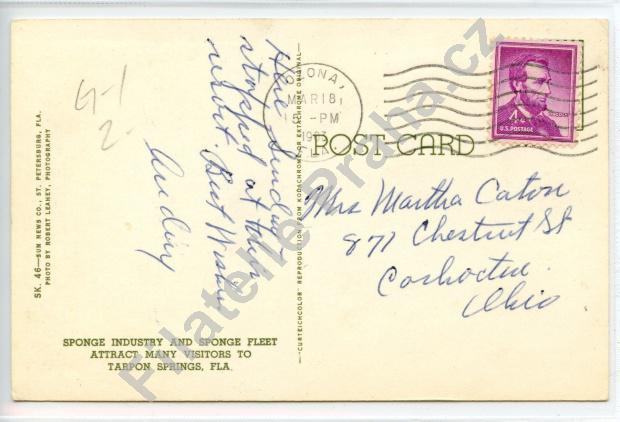 G-1
2
Here Sunday
stopped at this
resort. Best Wishes
SK. 46—SUN NEWS CO., ST. PETERSBURG, FLA.
PHOTO BY ROBERT LEAHEY, PHOTOGRAPHY
SPONGE INDUSTRY AND SPONGE FLEET
ATTRACT MANY VISITORS TO
TARPON SPRINGS, FLA.
"CURTEICHCOLOR" REPRODUCTION FROM KODACHROME OR EKTACHROME ORIGINAL
POST CARD
MAR 18,
-PM
LINCOLN
4¢
U.S. POSTAGE
Mrs Martha Caton
877 Chestnut St
Coshocton
Ohio
Filatelie Praha.cz